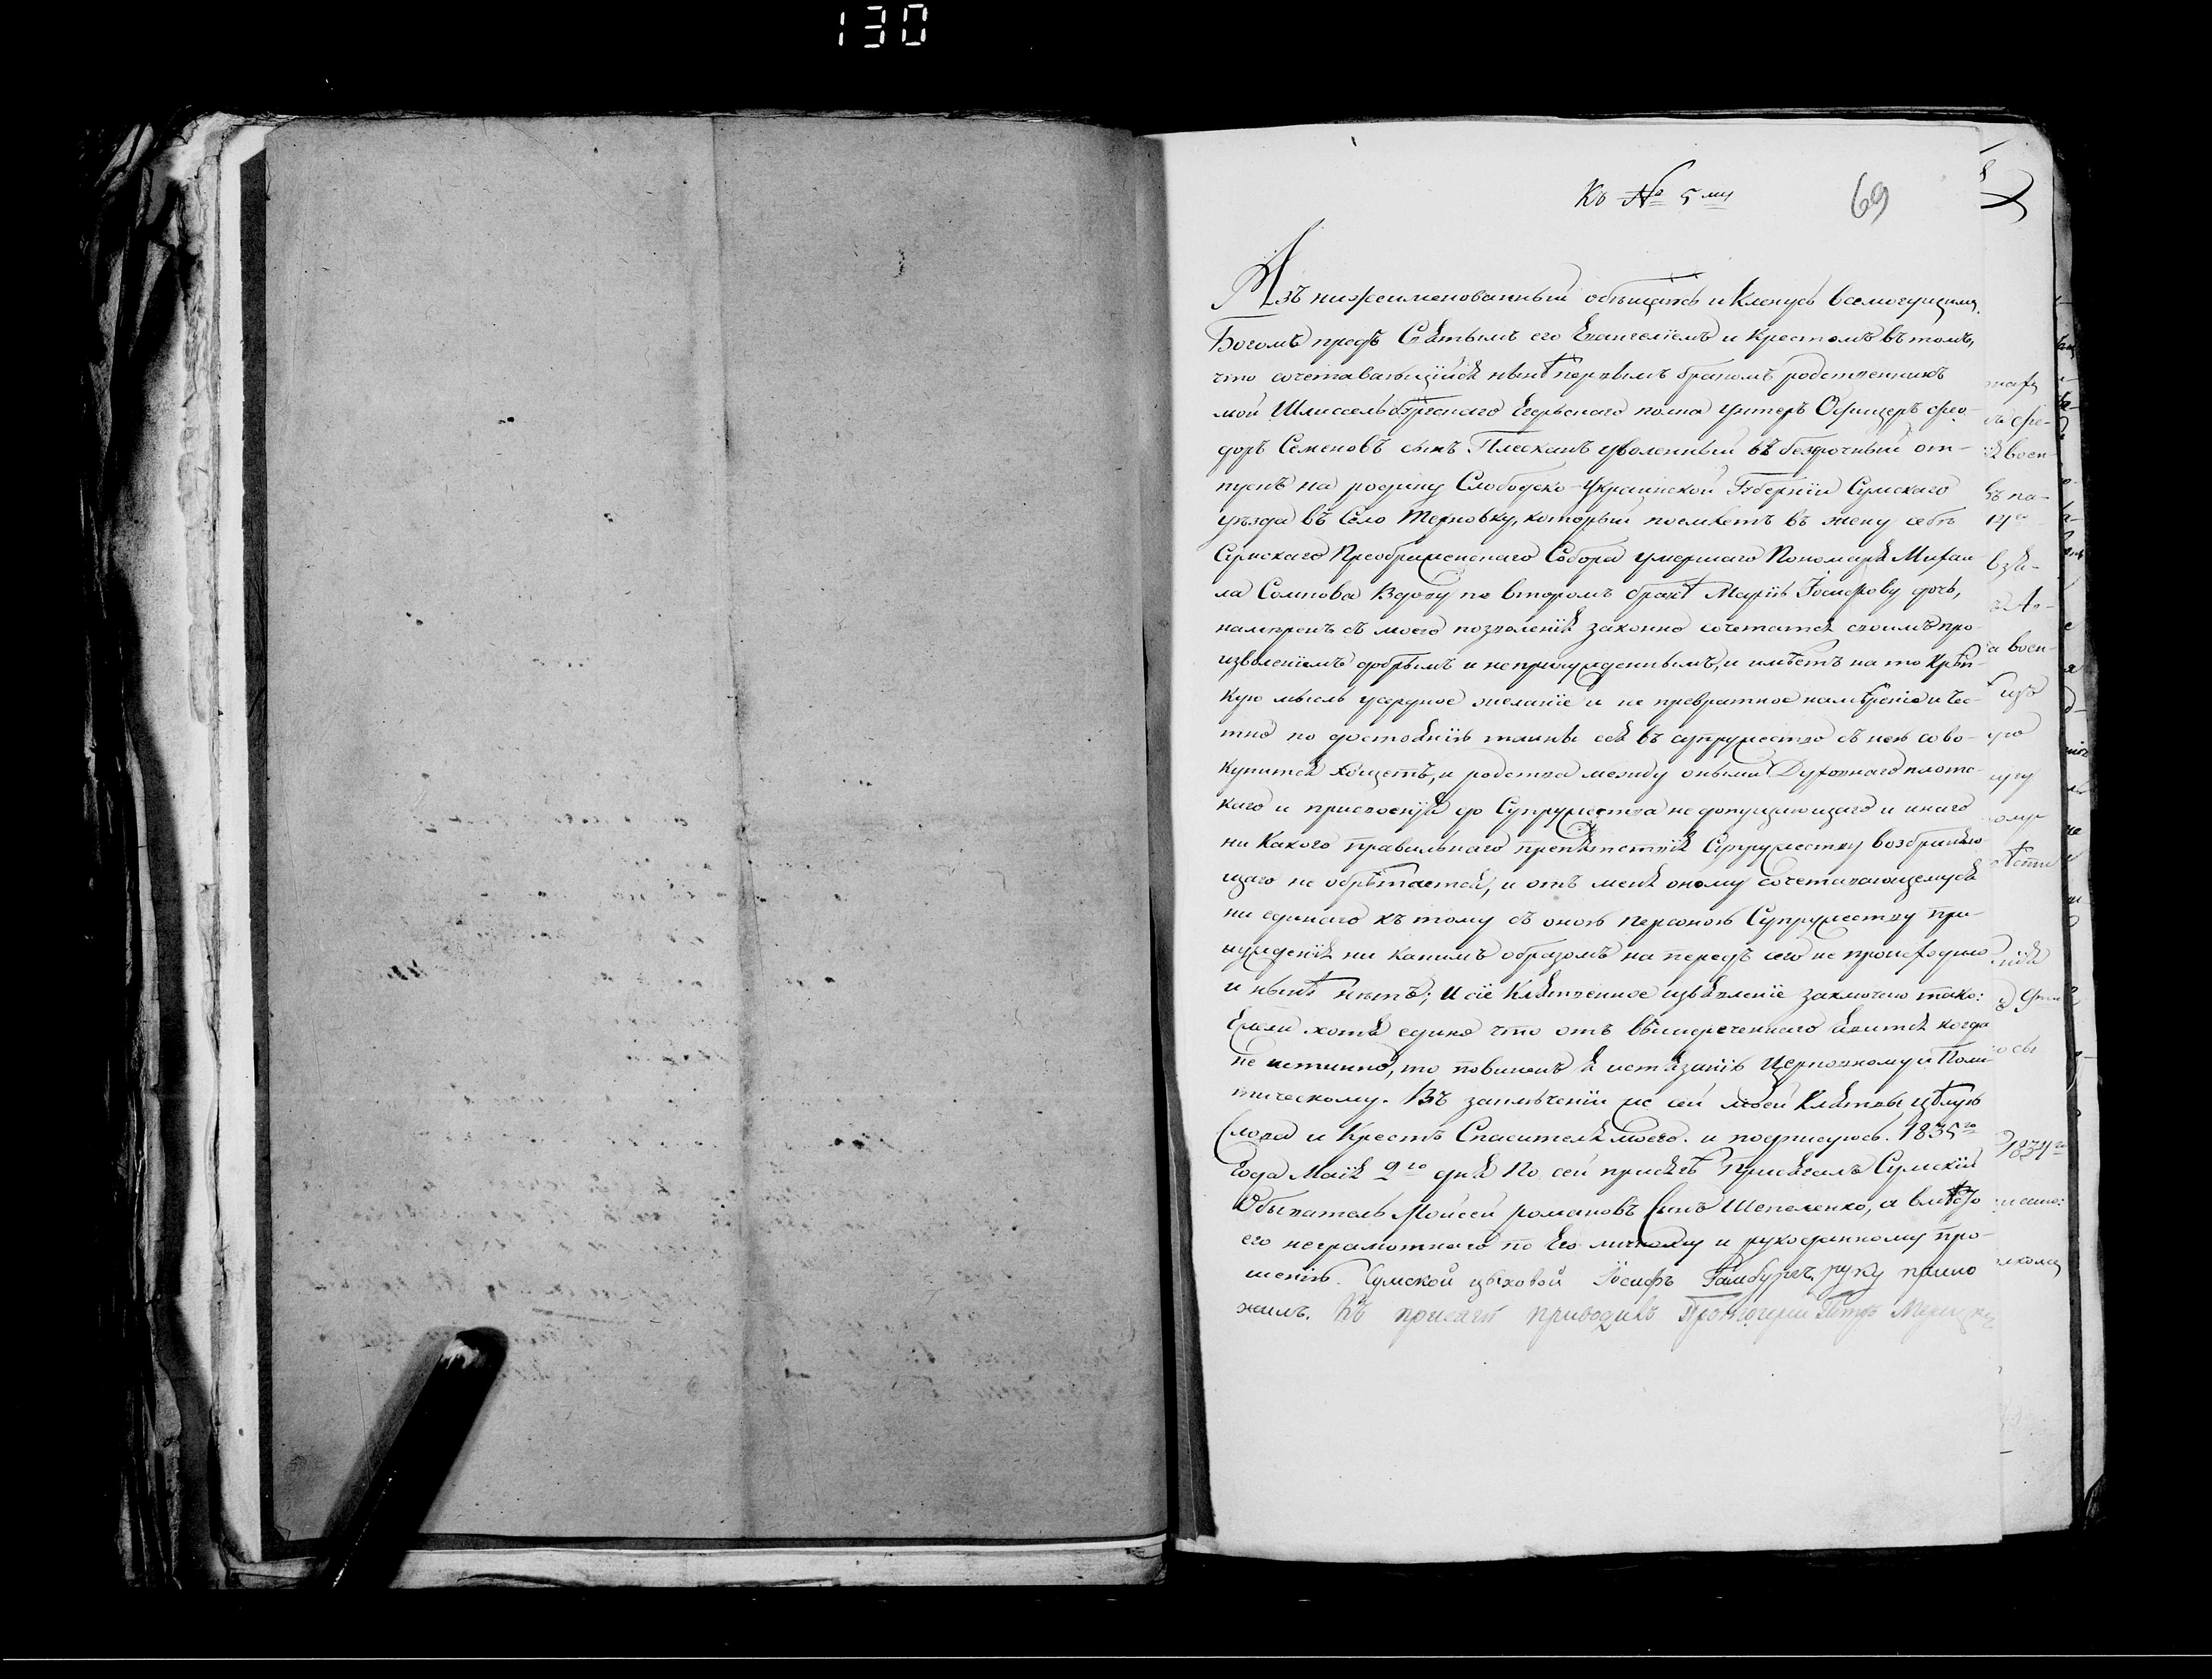 130
Къ № 5му
69
Азъ нижеименованный обѣщаюсь и Кленусь всемогущимъ
Богомъ предъ Святымъ его Евангелїемъ и Крестомъ въ томъ,
что сочетавающїйся нынѣ первымъ бракомъ родственникъ
мой Шлиссельбургскаго Егерьскаго полка унтеръ Офицеръ Фео-
доръ Семеновъ сынъ Плескачъ уволенный въ безсрочный от-
пускъ на родину Слободско-Украинской Губернїи Сумскаго
уѣзда въ Село Терновку, который поемлетъ въ жену себѣ
Сумскаго Преображенскаго Собора умершаго Пономаря Михаи
ла вдову по второмъ бракѣ Марїю Іосифову дочь,
намѣренъ съ моего позволенїя законно сочетатся своимъ про-
изволенїемъ добрымъ и непринужденнымъ, и имѣетъ на то Крѣп-
кую мысль усердное желанїе и не превратное намѣренїе и чес-
тно по достоянїю тайны сея въ супружество съ нею сово-
купится хощетъ, и родства между оными Духовнаго плотс-
каго и присвоенїя до Супружества недопущающаго и инаго
ни Какого правильнаго препятствїя Супружеству возбраняю
щаго не обрѣтается, и отъ меня оному сочетавающемуся
ни единаго къ тому съ оною персоною Супружеству при-
нужденїя ни какимъ образомъ на передъ сего не происходило
и нынѣ нѣтъ; И сїе Клятвенное извявленїе заключаю тако:
Ежели хотя едино что отъ вышереченнаго явится когда
не истинно, то повиненъ я истязанїю Церковному и Поли
тическому. Въ заключенїи же сей моей Клятвы цѣлую
Слова и Крестъ Спасителя моего. и подписуюсь. 1835го
Года Маїя 9го дня По сей присягѣ Присягалъ Сумскїй
Обыватель Мойсей романовъ сынъ Шепеленко, а вмѣсто
его неграмотнаго по Его личному и рукоданному про-
шенїю. Сумской цѣховой Іосифъ Гамбургъ руку прило
жилъ. Къ присягѣ приводилъ Протоїерей Петръ
1834го